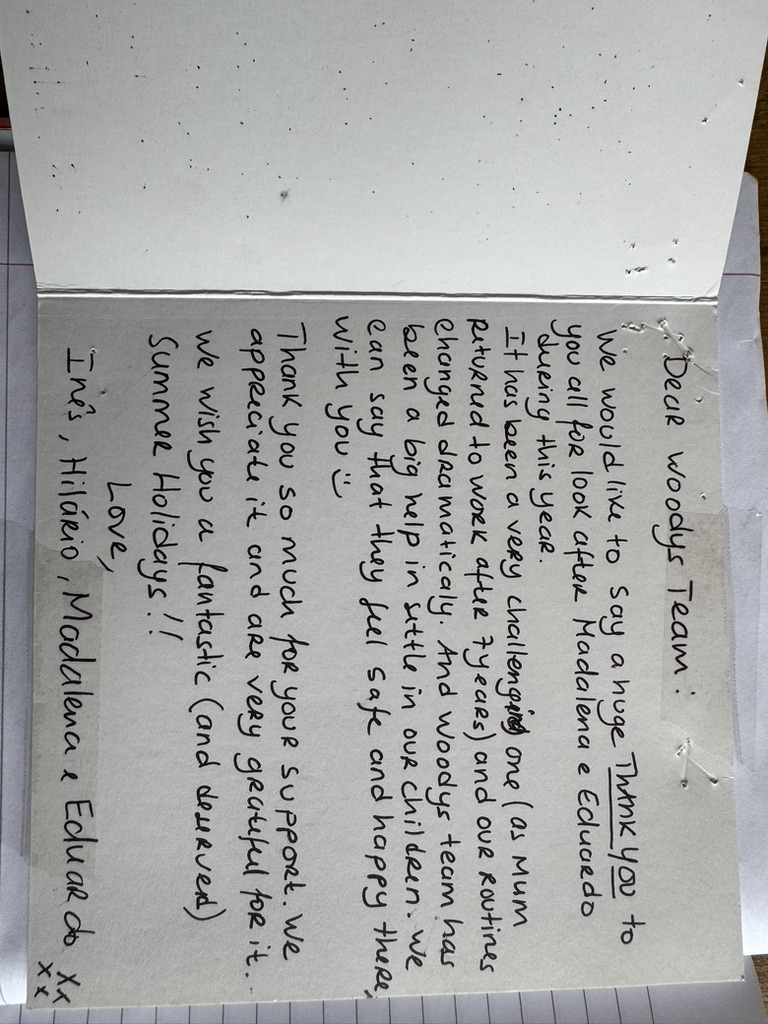 Dear Woodys Team:
We would like to say a huge Thank you to
you all for look after Madalena e Eduardo
during this year.
It has been a very challenging one (as Mum
returned to work after 7 years) and our routines
changed dramaticaly. And Woodys team has
been a big help in settle in our children. We
can say that they feel safe and happy there,
with you :)
Thank you so much for your support. We
appreciate it and are very grateful for it..
We wish you a fantastic (and deserved)
Summer Holidays!!
Love,
Inês, Hilário, Madalena e Eduardo xx
xx